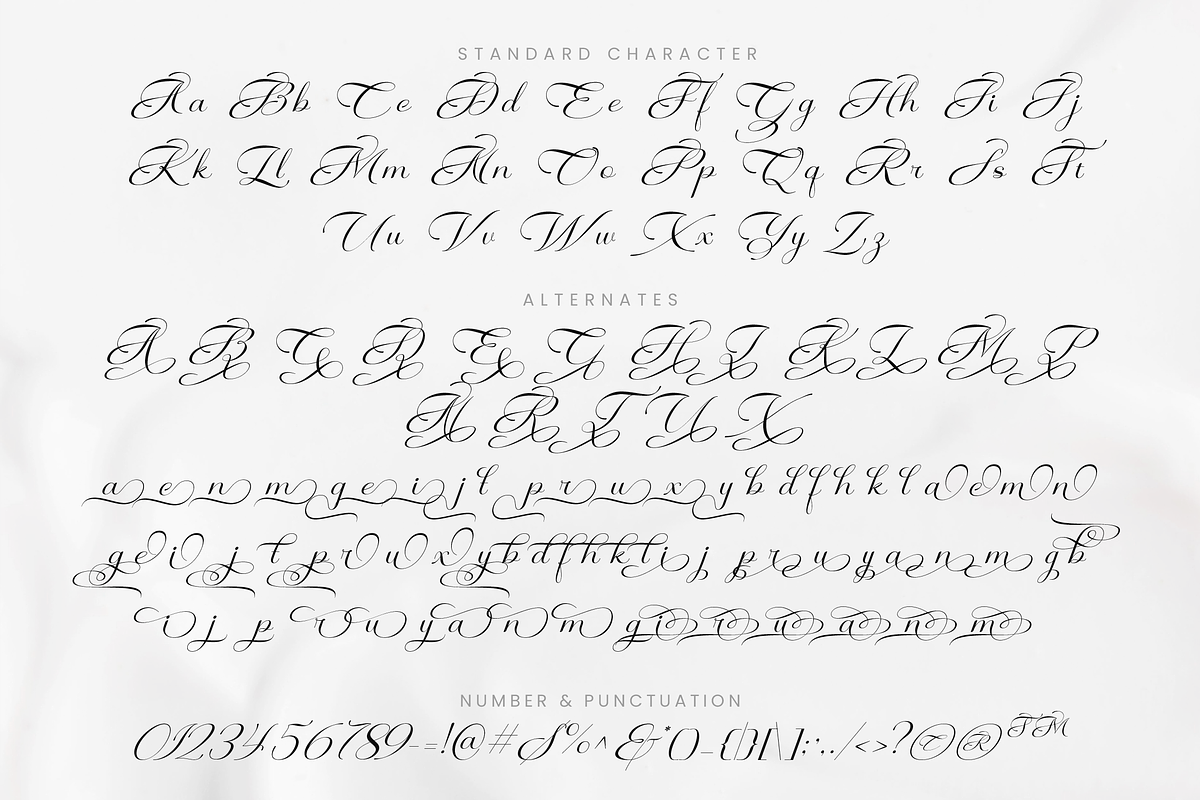 STANDARD CHARACTER
Aa Bb Cc Dd Ee Ff Gg Hh Ii Jj
Kk Ll Mm Nn Oo Pp Qq Rr Ss Tt
Uu Vv Ww Xx Yy Zz
ALTERNATES
A B C D E G H I K L M P
N R T U X
a e n m g e i j t p r u x y b d f h k l a e m n
g e i j t p r u x y b d f h k l i j p r u y a n m g b
i j p r u y a n m g i r u a n m
NUMBER & PUNCTUATION
0123456789-=!@#$%^&*()_{|}[\]:;../<>?©®™